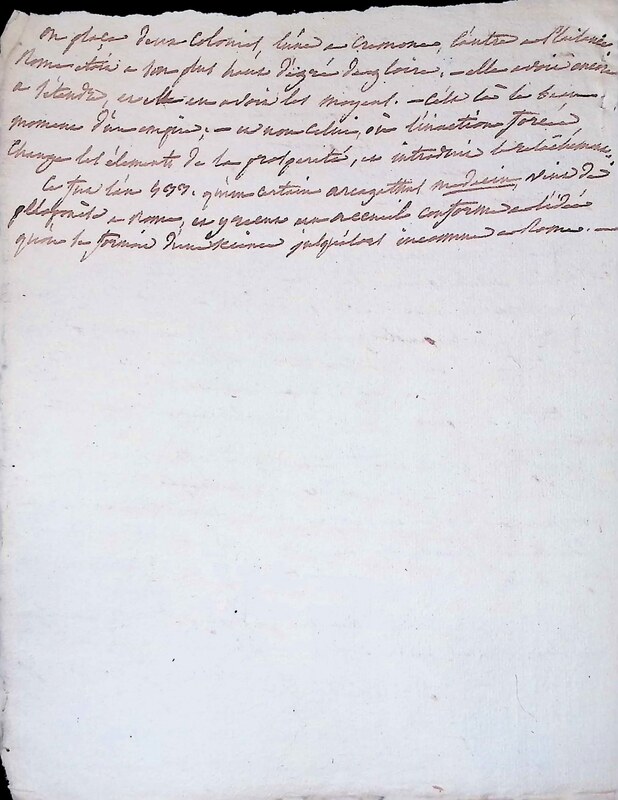 on plaça deux colonies, l'une a Cremone, l'autre a Plaisance.
Rome etoit a son plus haut dégré de gloire. – elle avoit encore
a s'étendre, et elle en avoit les moyens. – c'est là le beau
moment d'un empire. – et non celui, où l'inaction forcée
change les élements de la prosperité, et introduit le relâchement.
Ce fut l'an 533. qu'un certain arcagathus medecin, vint du
peloponèse a Rome, et y recut un accueil conforme a l'idée
qu'on se formoit d'une science jusqu'alors inconnue a Rome. –